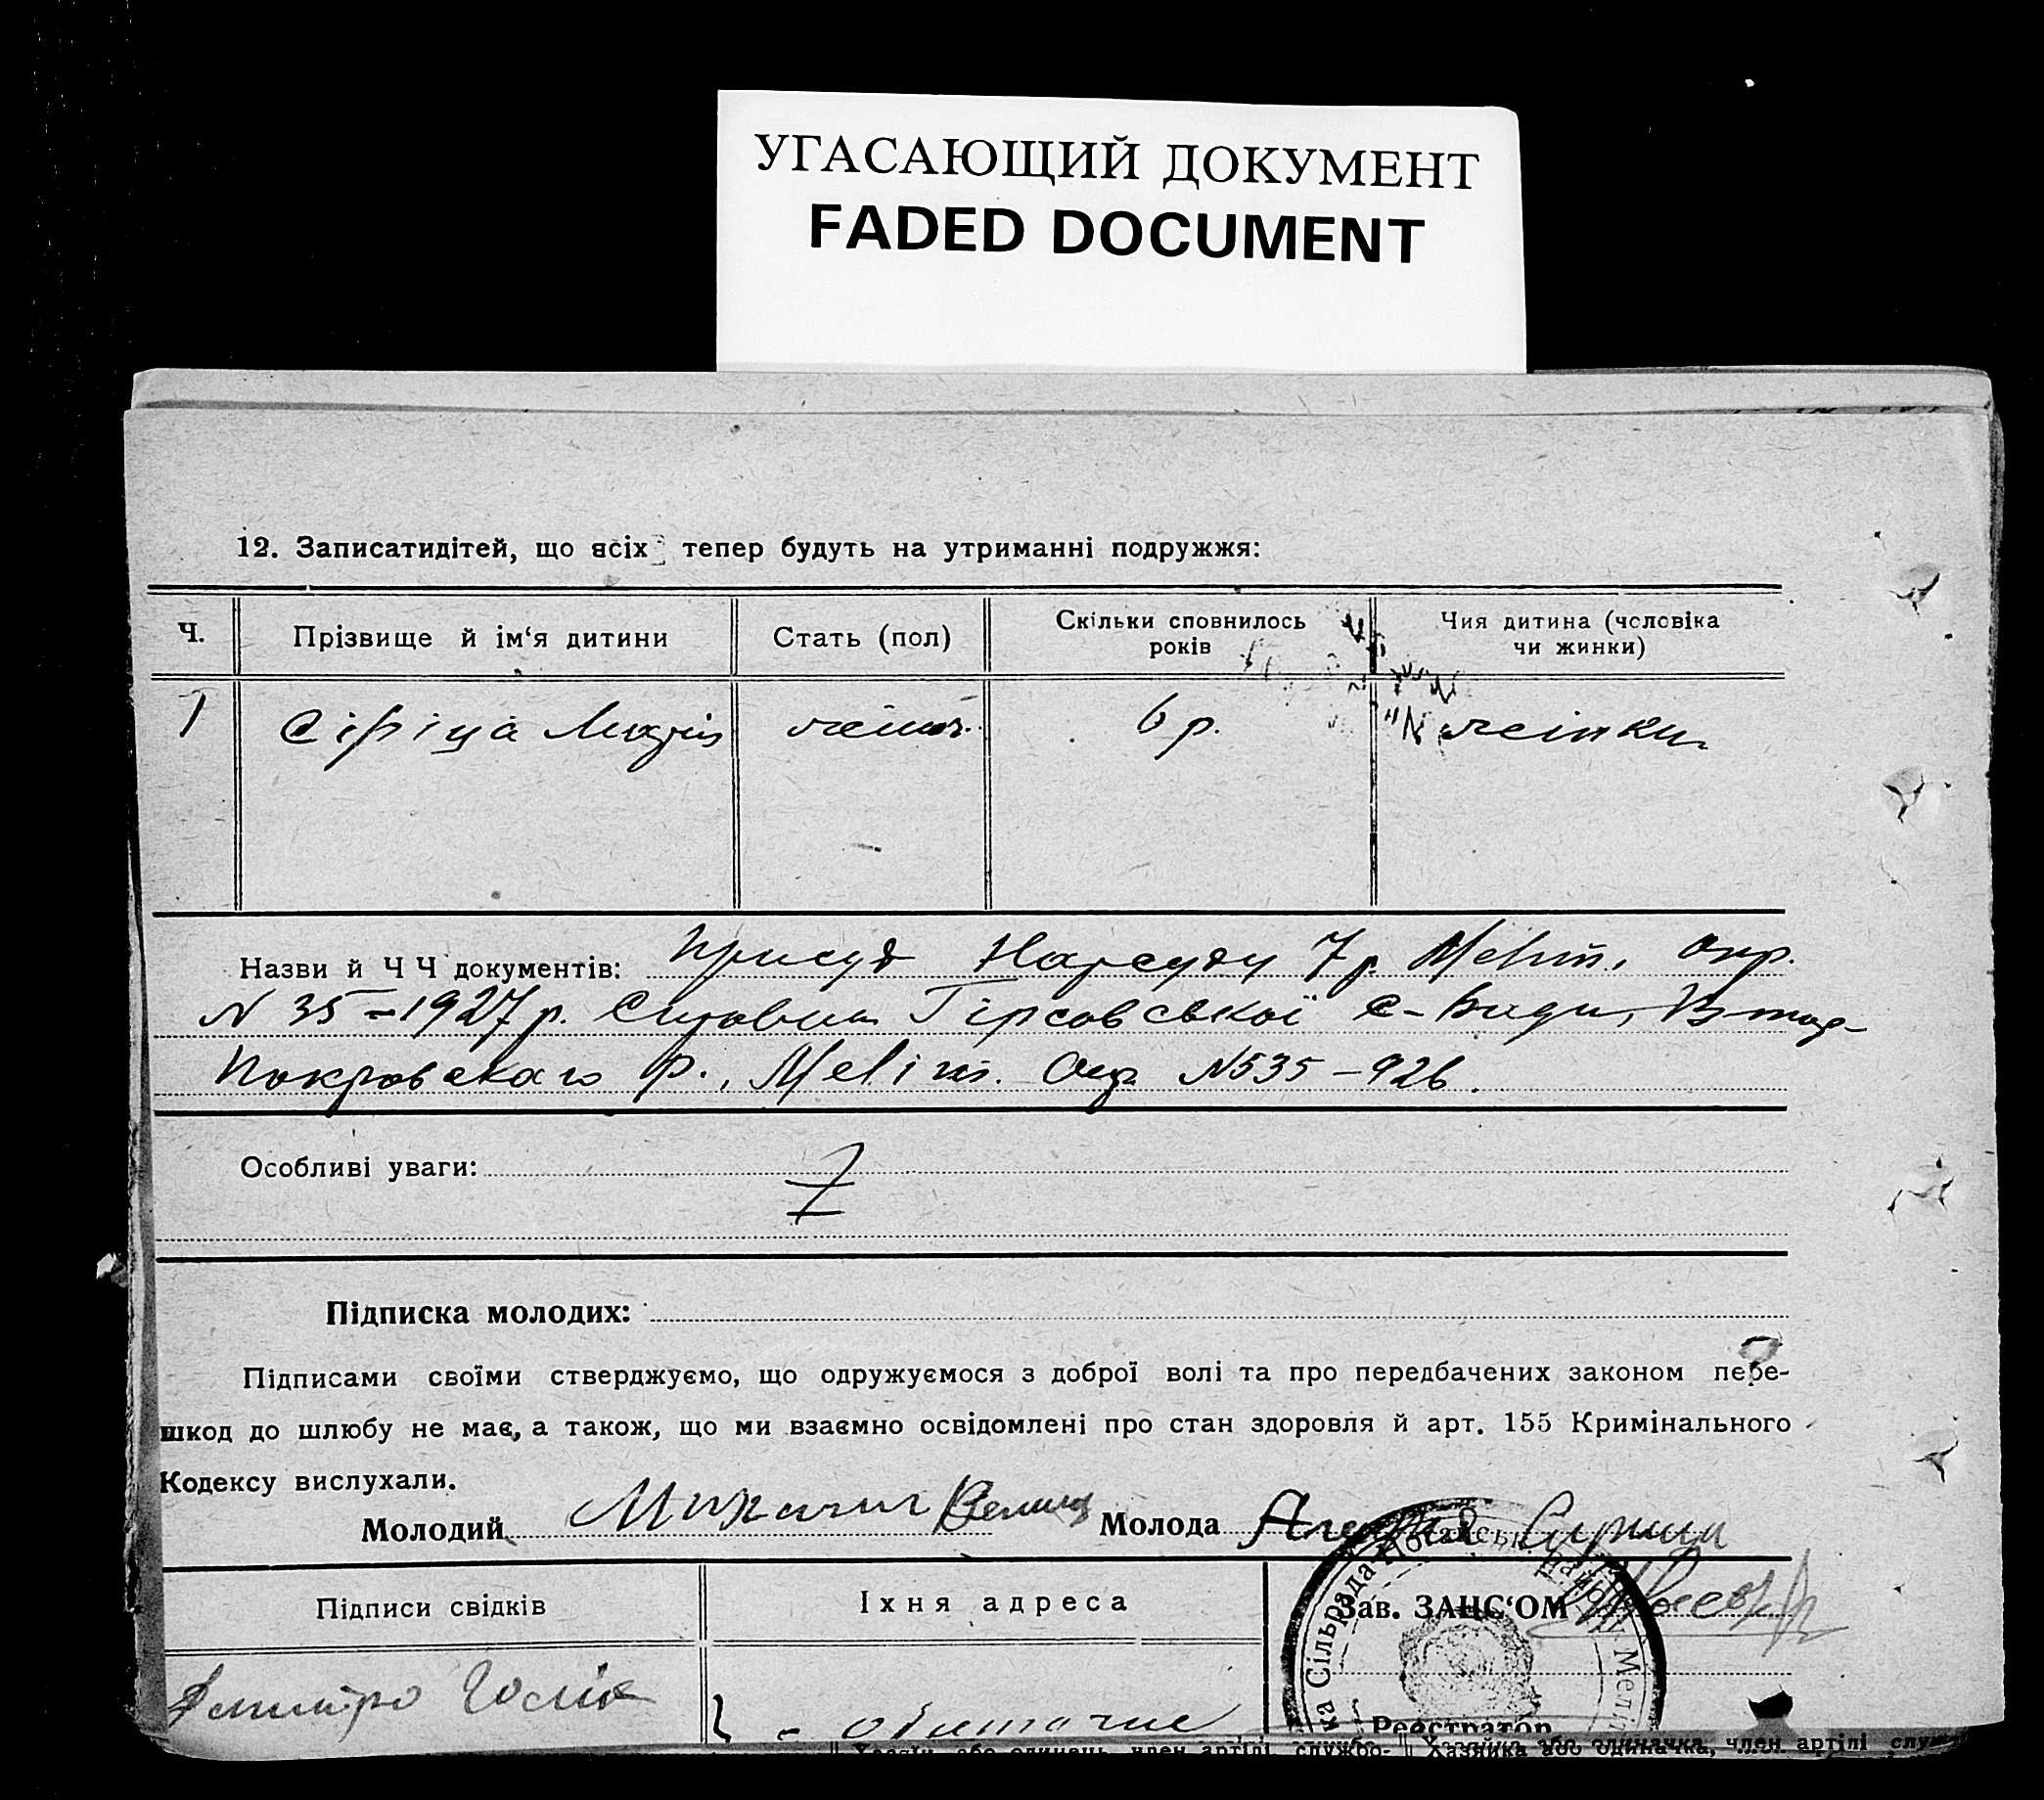 УГАСАЮЩИЙ ДОКУМЕНТ
FADED DOCUMENT
12. Записатидітей, що всіх тепер будуть на утриманні подружжя:
Ч. Прізвище й ім‘я дитини Стать (пол) Скільки сповнилось років Чия дитина (чоловіка чи жинки)
1 Сіріца жіноч. 6 р. жінки
Назви й Ч Ч документів: Присуд Нарсуду 7 р. Меліт. Окр.
N 35 – 1927 р. Гірсовської С-Ради,
Покровскаго Р., Меліт. Окр N535 – 926.
Особливі уваги:
Підписка молодих:
Підписами своїми стверджуємо, що одружуємося з доброї волі та про передбачених законом пере-
шкод до шлюбу не має, а також, що ми взаємно освідомлені про стан здоровля й арт. 155 Кримінального
Кодексу вислухали.
Молодий Молода
Підписи свідків Їхня адреса Зав. ЗАЦС‘ОМ
Дмитро
Реєстратор
Хазяїн або одинець, член артілі службо- Хазяйка або одиначка, член артілі служ